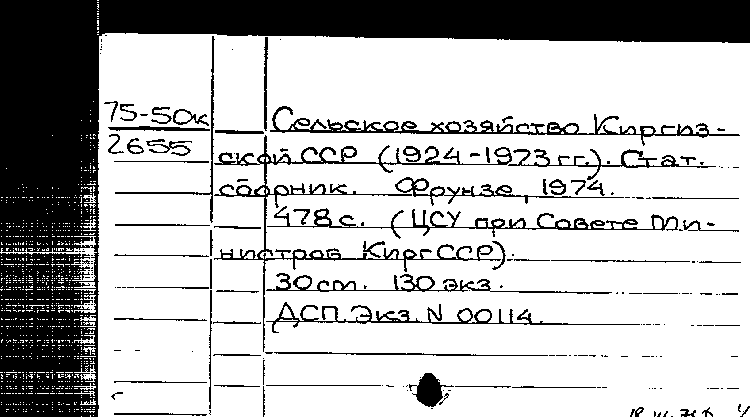 75-50к
2655
Сельское хозяйство Киргиз-
ской ССР (1924-1973 гг.). Стат.
сборник. Фрунзе, 1974.
478 с. (ЦСУ при Совете Ми-
нистров КиргССР).
30 см. 130 экз.
ДСП. Экз. N 00114.